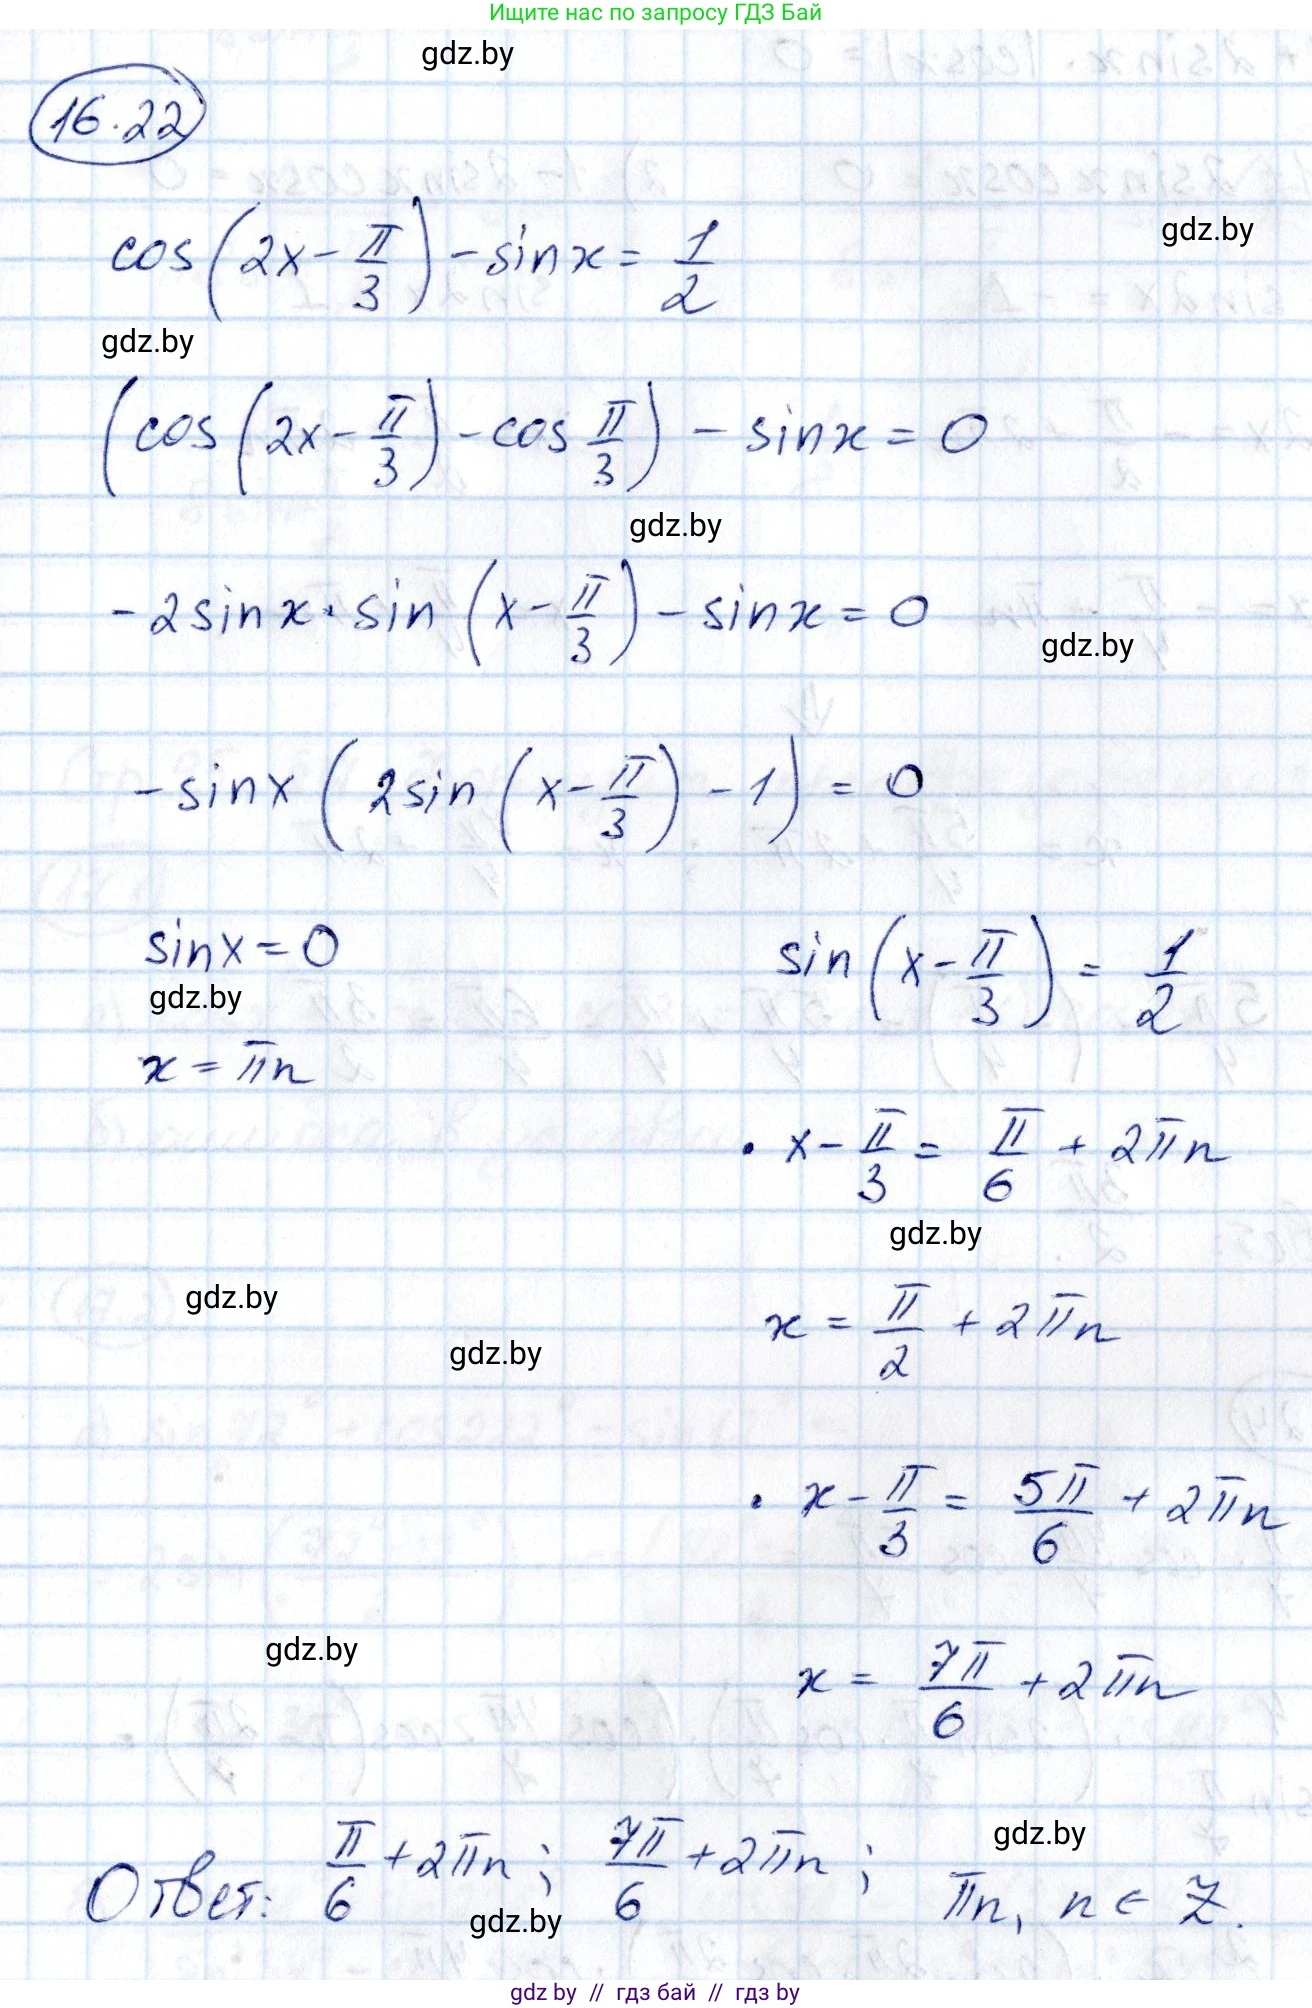 Ищите нас по запросу ГДЗ Бай
gdz.by
16.22
cos(2x - π/3) - sinx = 1/2
gdz.by
gdz.by
(cos(2x - π/3) - cos π/3) - sinx = 0
gdz.by
-2sinx · sin(x - π/3) - sinx = 0
gdz.by
-sinx (2sin(x - π/3) - 1) = 0
sinx = 0
sin(x - π/3) = 1/2
gdz.by
x = πn
· x - π/3 = π/6 + 2πn
gdz.by
gdz.by
x = π/2 + 2πn
gdz.by
· x - π/3 = 5π/6 + 2πn
gdz.by
x = 7π/6 + 2πn
gdz.by
Ответ: π/6 + 2πn; 7π/6 + 2πn; πn, n ∈ Z.
gdz.by
gdz by // гдз бай // gdz by